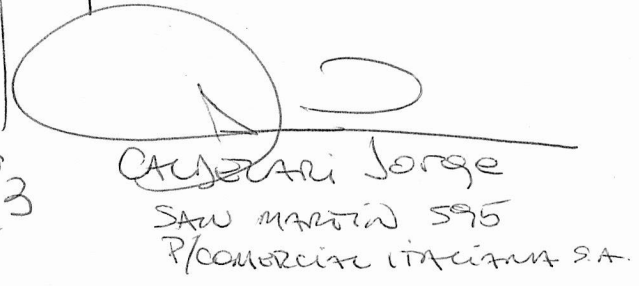 CALDERARI Jorge
3
SAN MARTIN 595
P/COMERCIAL ITALIANA S.A.